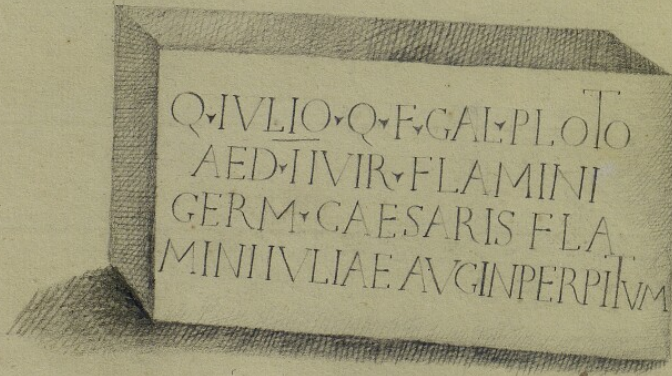 Q·IVLIO·Q·F·GAL·PLOTO
AED·IIVIR·FLAMINI
GERM·CAESARIS FLA
MINI IVLIAE AVG IN PERPITVM